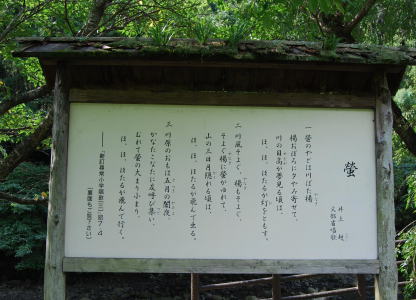 螢
井上 赳
文部省唱歌
一 螢のやどは川ばた楊
楊おぼろに夕やみ寄せて、
川の目高が夢見る頃は、
ほ、ほ、ほたるが灯をともす。
二 川風そよぐ、楊もそよぐ、
そよぐ楊に螢がゆれて、
山の三日月隠れる頃は、
ほ、ほ、ほたるが飛んで出る。
三 川原のおもは五月の闇夜、
かなたこなたに友呼び集い、
むれて螢の大まり小まり、
ほ、ほ、ほたるが飛んで行く。